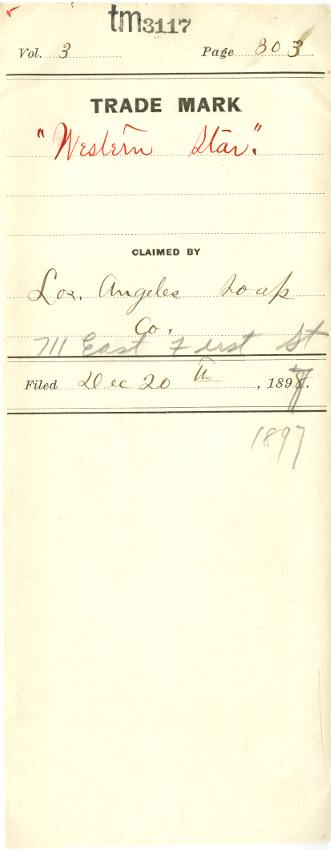 tm3117
Vol. 3 Page 303
TRADE MARK
"Western Star."
CLAIMED BY
Los. Angeles Soap
Co.
711 East First St
Filed Dec 20th, 1897.
1897